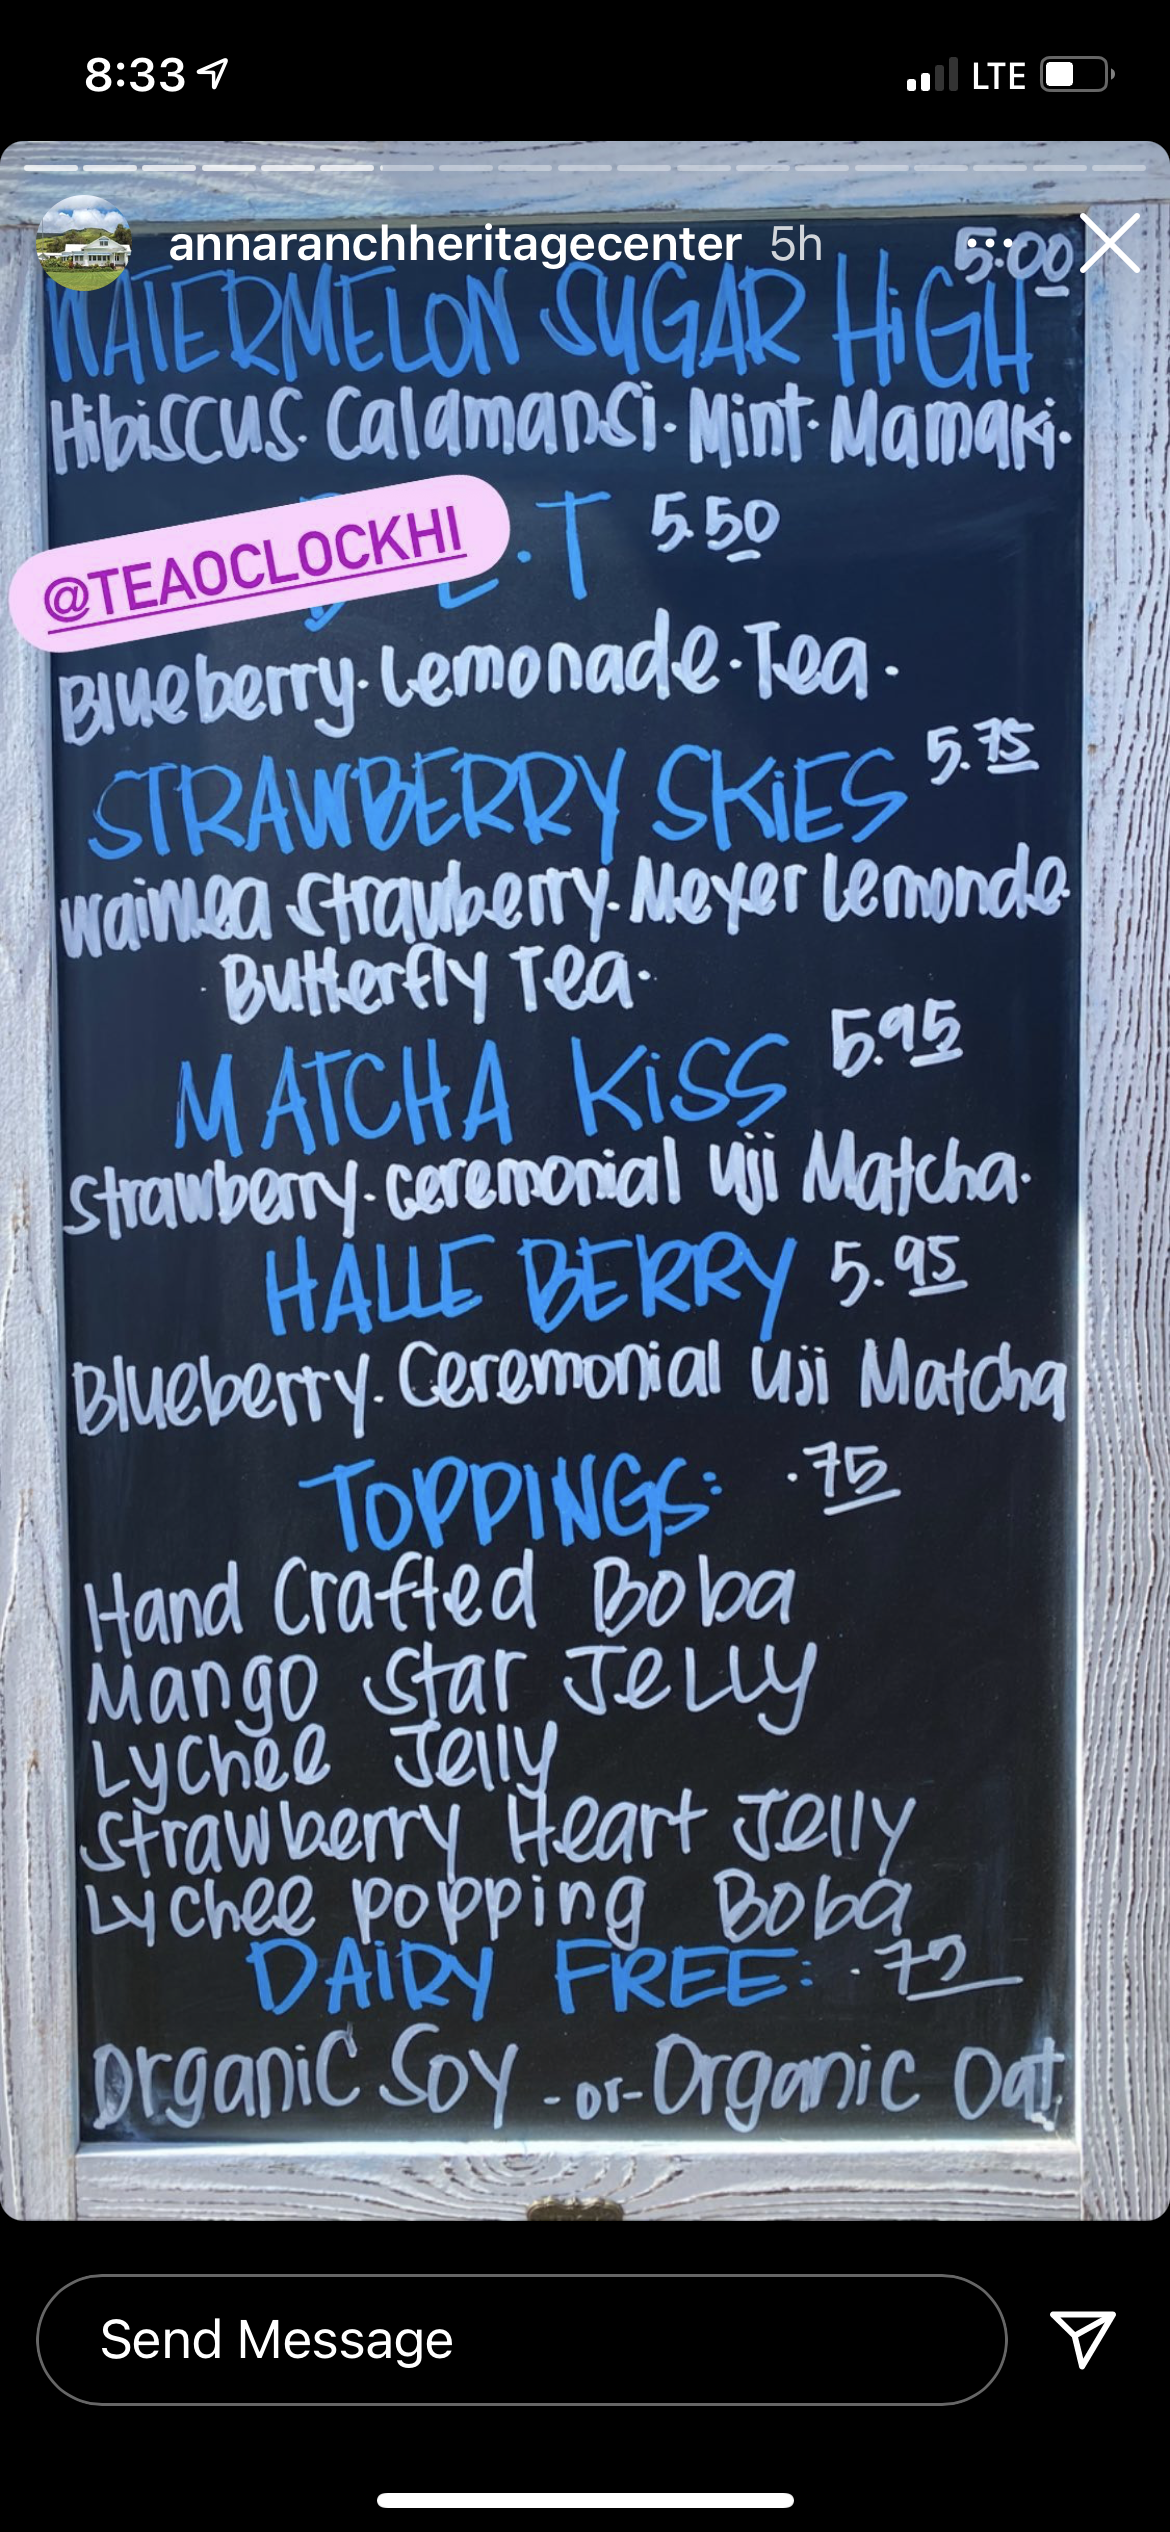 8:33
LTE
annaranchheritagecenter 5h
5:00
WATERMELON SUGAR HiGH
Hibiscus. Calamansi. Mint. Mamaki.
@TEAOCLOCKHI
L.T 5.50
Blueberry. Lemonade. Tea.
STRAWBERRY SKiES 5.75
Waimea Strawberry. Meyer Lemonde
. Butterfly Tea.
MATCHA KiSS 5.95
Strawberry. Ceremonial Uji Matcha.
HALLE BERRY 5.95
Blueberry. Ceremonial Uji Matcha
TOPPINGS: .75
Hand Crafted Boba
Mango Star Jelly
Lychee Jelly
Strawberry Heart Jelly
Lychee popping Boba
DAiRY FREE: .75
Organic Soy -or- Organic Oat
Send Message